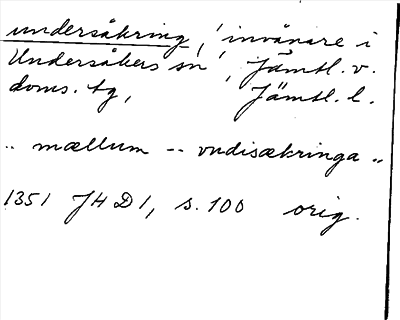 undersåkring, 'invånare i
Undersåkers sn', Jämtl. v.
doms. tg, Jämtl. l.
.. mællum -- vndisækringa ..
1351 JHD 1, s. 100 orig.